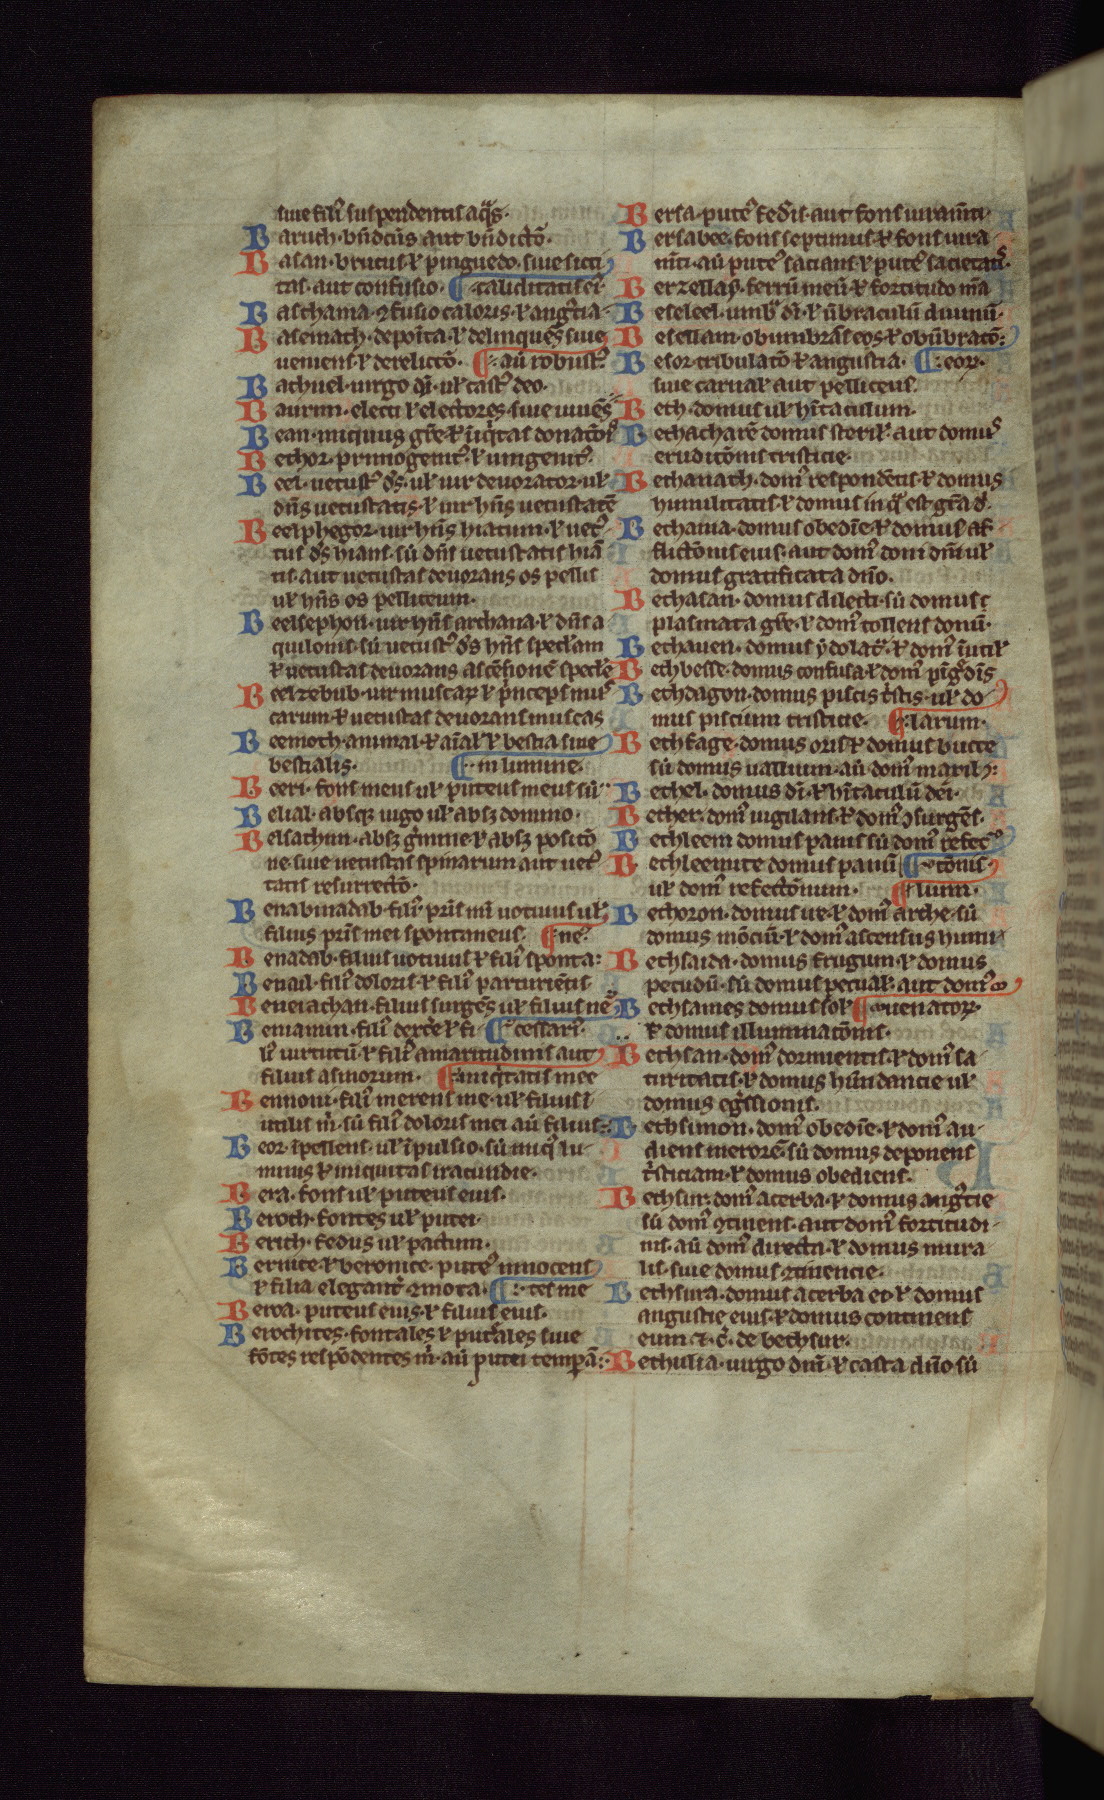 siue fili' suspendentis aq̄s.
Baruch. bn̄dcūs aut bn̄dictō.
Basan. brucus ⁊ pinguedo. siue sicci
tas. aut confusio. ¶ caliditatis ei'
Baschama. ꝯfusio caloris. ⁊ ang'tia.
Basemath. deposita. ⁊ delinquēs siue
ueniens. ⁊ derelictō. ¶ aū robust'
Bathuel. uirgo di. ul' cast' deo.
Baurim. electi ⁊ electores. siue iuuēs
Bean. iniquus. ⁊ īiq'tas donatōis
Bechor. primogenit'. ⁊ unigenit'
Beel. uetust' d's. ul' uir deuorator. ul'
dn̄s uetustatis. ⁊ uir hn̄s uetustatē
Beelphegor. uir hn̄s hiatum. ⁊ uet'
tus d's hians. sū dn̄s uetustatis hiā
tis. aut uetustas deuorans os pellis
ul' hn̄s os pelliceum.
Beelsephon. uir hn̄s archana. ⁊ dn̄s a
quilonis. sū uetust' d's hn̄s spec'lam
⁊ uetustas deuorans ascēsionē spec'le
Beelzebub. uir muscaꝝ ⁊ p'nceps mus
carum. ⁊ uetustas deuorans muscas
Beemoth. animal. ⁊ aīal' ⁊ bestia siue
bestialis. ¶ in lumine.
Beeri. fons meus ul' puteus meus sū
Belial. absq; iugo ul' absq; domino.
Belsachim. absq; ⁊ absq; positō
ne. siue uetustas spinarum aut uet'
tatis resurrectō.
Benabinadab. fili' pr̄is mī uotiuus ul'
filius pr̄is mei spontaneus. ¶ ne'
Benadab. filius uotiuus ⁊ fili' sponta:
Benail. fili' doloris ⁊ fili' parturiētis
Beneiachan. filius surgēs ul' filius ne
Beniamin. fili' dext'e ⁊ fi ¶ cessari'
li' uirtutū. ⁊ fili' amaritudinis aut
filius asinorum. ¶ iniq'tatis mee
Bennoni. fili' merens me. ul' filius ī
utilis m̄. sū fili' doloris mei aū filius
Beor. īpellens. ul' īpulsio. sū iniq' lu
minis ⁊ iniquitas iracundie.
Bera. fons ul' puteus eius.
Beroth. fontes ul' putei.
Berith. fedus ul' pactum.
Bernice. ⁊ beronice. pute' innocens
⁊ filia elegant' ꝯmota. ¶ tes me
Beroa. puteus eius. ⁊ filius eius.
Berothites. fontales ⁊ put'ales siue
fōtes respōdentes m̄. aū putei temp̄ā:
Bersa. pute' fedis. aut fons iuram̄ti.
Bersabee. fons septimus ⁊ fons iura
m̄ti. aū pute' sacians ⁊ pute' sacietatis
Berzellay. ferrū meū ⁊ fortitudo m̄a
Beseleel. umb' di. ⁊ ūbraculū diuinū.
Besellam. obumbrās eos ⁊ obūbratō:
Besor. tribulatō ⁊ angustia. ¶ eoꝝ.
siue carnal' aut pelliceus.
Beth. domus ul' hītaculum.
Bethacharē domus steril' aut domus
eruditōnis tristicie.
Bethanath. dom' respondētis ⁊ domus
humilitatis ⁊ domus in q' est gr̄a d'
Bethania. domus obedīe. ⁊ domus af
flictōnis eius. aut dom' doni dn̄i ul'
domus gratificata dn̄o.
Bethasan. domus dilecti. sū domus ꝯ
plasmata ⁊ dom' tollens donū.
Bethauen. domus ydolat'. ⁊ dom' īutil'
Bethbesse. domus confusa. ⁊ dom' pīg'dis
Bethdagon. domus piscis t'stis. ul' do
mus piscium tristicie. ¶ larum.
Bethfage. domus oris ⁊ domus bucce
sū domus uallium. aū dom' maxil':
Bethel. domus di. ⁊ hītaculū dei.
Bether. dom' uigilans. ⁊ dom' ꝯsurgēs.
Bethleem domus panis sū dom' refec
Bethleemite domus panū ¶ tōnis
ul' dom' refectōnum. ¶ lium.
Bethoron. domus ire. ⁊ dom' arche. sū
domus mōciū. ⁊ dom' ascensus humi
Bethsaida. domus frugum. ⁊ domus
pecudū. sū domus pecual'. aut dom'
Bethsames domus sol' ¶ uenatoꝝ.
⁊ domus illuminatōnis.
Bethsan. dom' dormientis. ⁊ dom' sa
turitatis. ⁊ domus hūndancie ul'
domus eg'ssionis.
Bethsimon. dom' obedīe. ⁊ dom' au
diens merorē. sū domus deponens
t'sticiam. ⁊ domus obediens.
Bethsur. dom' acerba. ⁊ domus ang'tie
sū dom' ꝯtinens. aut dom' fortitudi
nis. aū dom' directa. ⁊ domus mura
lis. siue domus ꝯtinencie.
Bethsura. domus acerba et ⁊ domus
angustie eius. ⁊ domus continens
eum ⁊ c̄. de bethsur.
Bethulia. uirgo dn̄i. ⁊ casta dn̄o sū